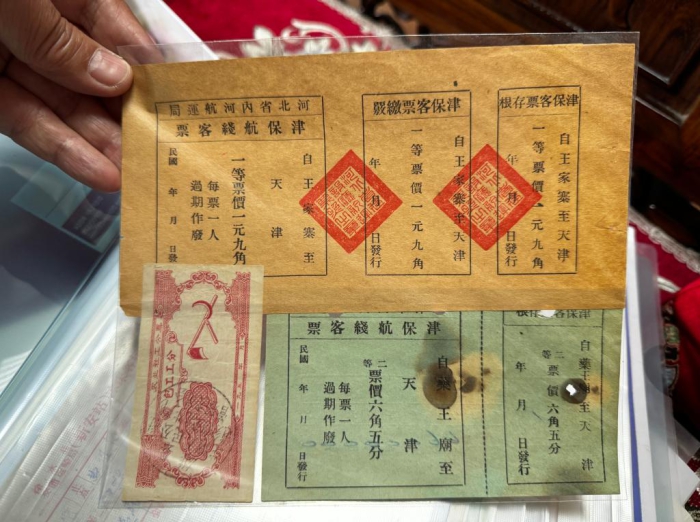 河北省內河航運局
津保航綫客票
自王家寨至
天津
一等票價一元九角
每票一人
過期作廢
民國 年 月 日發行
津保客票繳覈
自王家寨至天津
一等票價一元九角
年 月 日發行
津保客票存根
自王家寨至天津
一等票價一元九角
年 月 日發行
津保航綫客票
自藥王廟至
天津
二等票價六角五分
每票一人
過期作廢
民國 年 月 日發行
根
自藥王廟至天津
二等票價六角五分
年 月 日發行